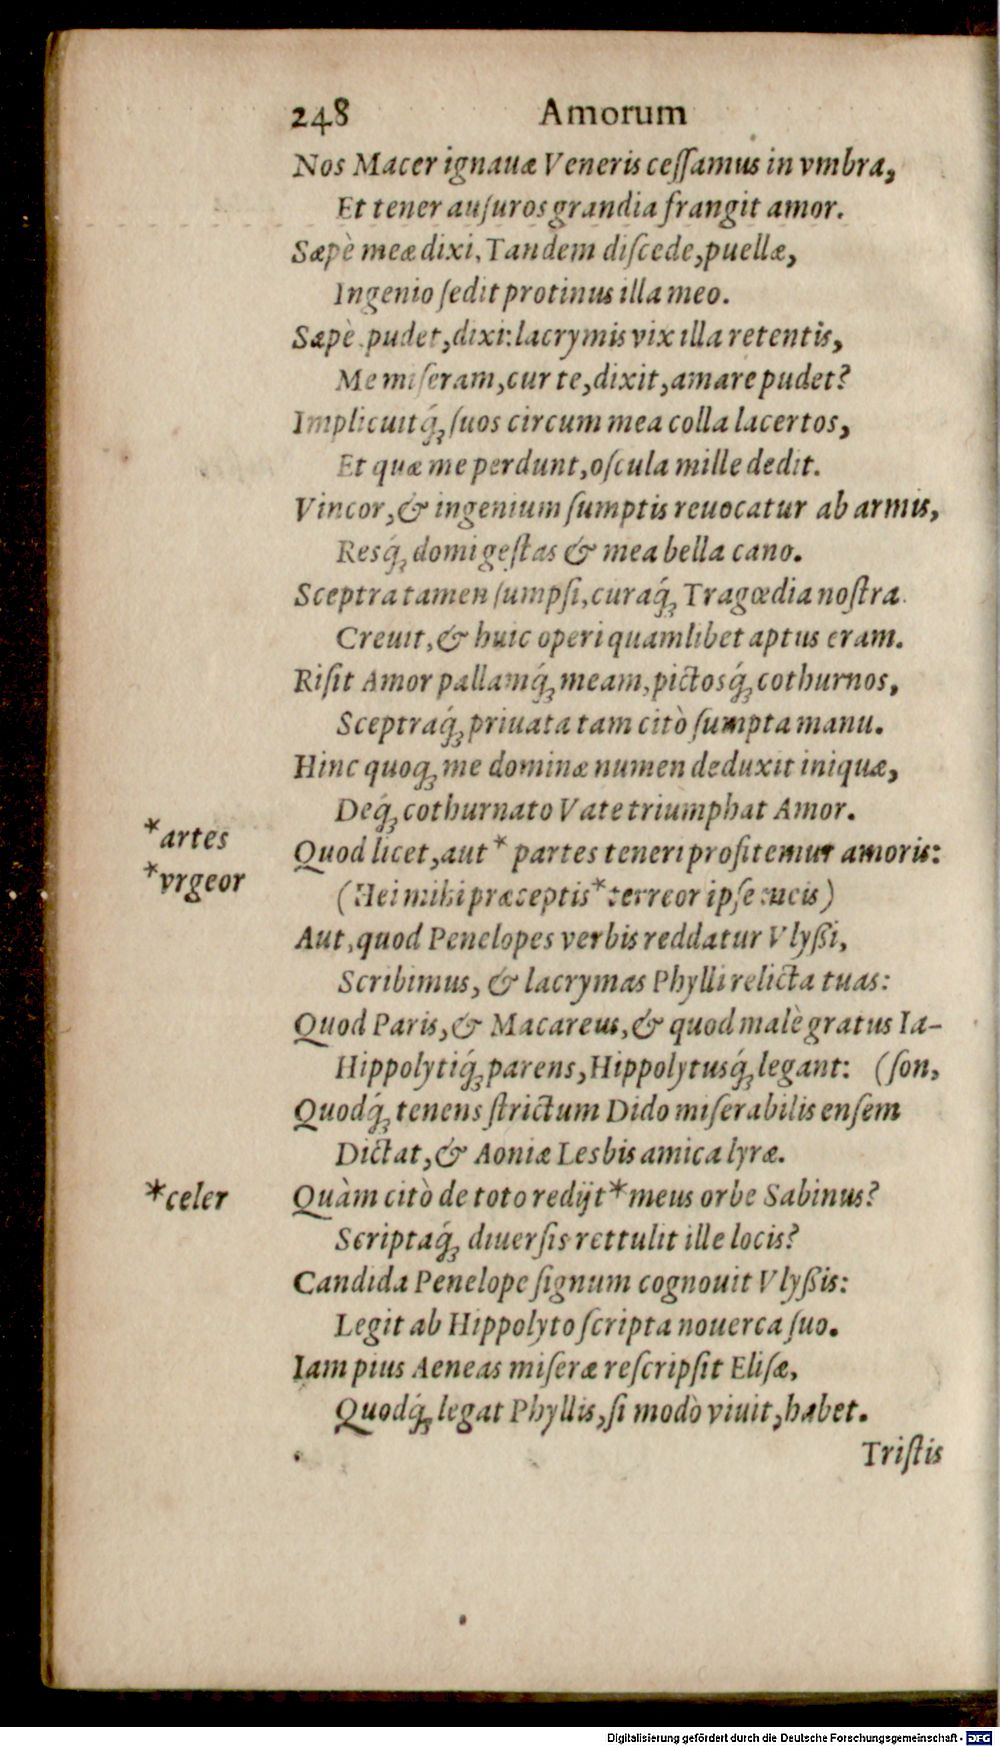 248 Amorum
Nos Macer ignauæ Veneris ceſſamus in vmbra,
Et tener auſuros grandia frangit amor.
Sæpè meæ dixi, Tandem diſcede, puellæ,
Ingenio ſedit protinus illa meo.
Sæpè pudet, dixi: lacrymis vix illa retentis,
Me miſeram, cur te, dixit, amare pudet?
Implicuitq́; ſuos circum mea colla lacertos,
Et quæ me perdunt, oſcula mille dedit.
Vincor, & ingenium ſumptis reuocatur ab armis,
Resq́; domi geſtas & mea bella cano.
Sceptra tamen ſumpſi, curaq́; Tragœdia noſtra.
Creuit, & huic operi quamlibet aptus eram.
Riſit Amor pallamq́; meam, pictosq́; cothurnos,
Sceptraq́; priuata tam citò ſumpta manu.
Hinc quoq; me dominæ numen deduxit iniquæ,
Deq́; cothurnato Vate triumphat Amor.
*artes
Quod licet, aut * partes teneri profitemur amoris:
*vrgeor
(Hei mihi præceptis * terreor ipſe meis)
Aut, quod Penelopes verbis reddatur Vlyßi,
Scribimus, & lacrymas Phylli relicta tuas:
Quod Paris, & Macareus, & quod malè gratus Ia-
Hippolytiq́; parens, Hippolytusq́; legant: (ſon,
Quodq́; tenens ſtrictum Dido miſerabilis enſem
Dictat, & Aoniæ Lesbis amica lyræ.
*celer
Quàm citò de toto redijt * meus orbe Sabinus?
Scriptaq́; diuerſis rettulit ille locis?
Candida Penelope ſignum cognouit Vlyßis:
Legit ab Hippolyto ſcripta nouerca ſuo.
Iam pius Aeneas miſeræ reſcripſit Eliſæ,
Quodq́; legat Phyllis, ſi modò viuit, habet.
Triſtis
Digitalisierung gefördert durch die Deutsche Forschungsgemeinschaft - DFG